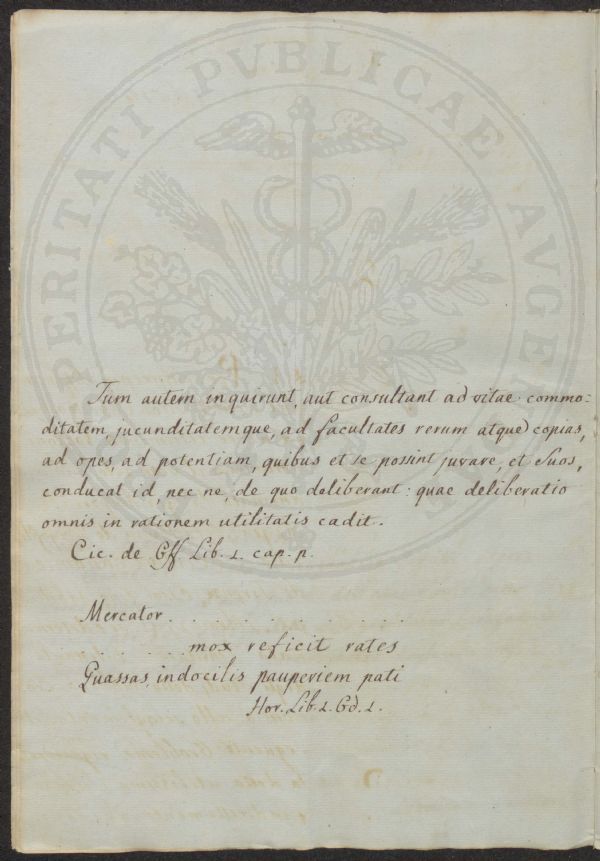 PROSPERITATI PVBLICAE AVGEN
Tum autem inquirunt, aut consultant ad vitae commo=
ditatem, jucunditatemque, ad facultates rerum atque copias,
ad opes, ad potentiam, quibus et se possint juvare, et Suos,
conducat id, nec ne, de quo deliberant: quae deliberatio
omnis in rationem utilitatis cadit.
Cic. de Off Lib. 1. cap. p.
Mercator . . . . . . . . . . . . .
. . . . . . mox reficit rates
Quassas, indocilis pauperiem pati
Hor. Lib. 1. Od. 1.